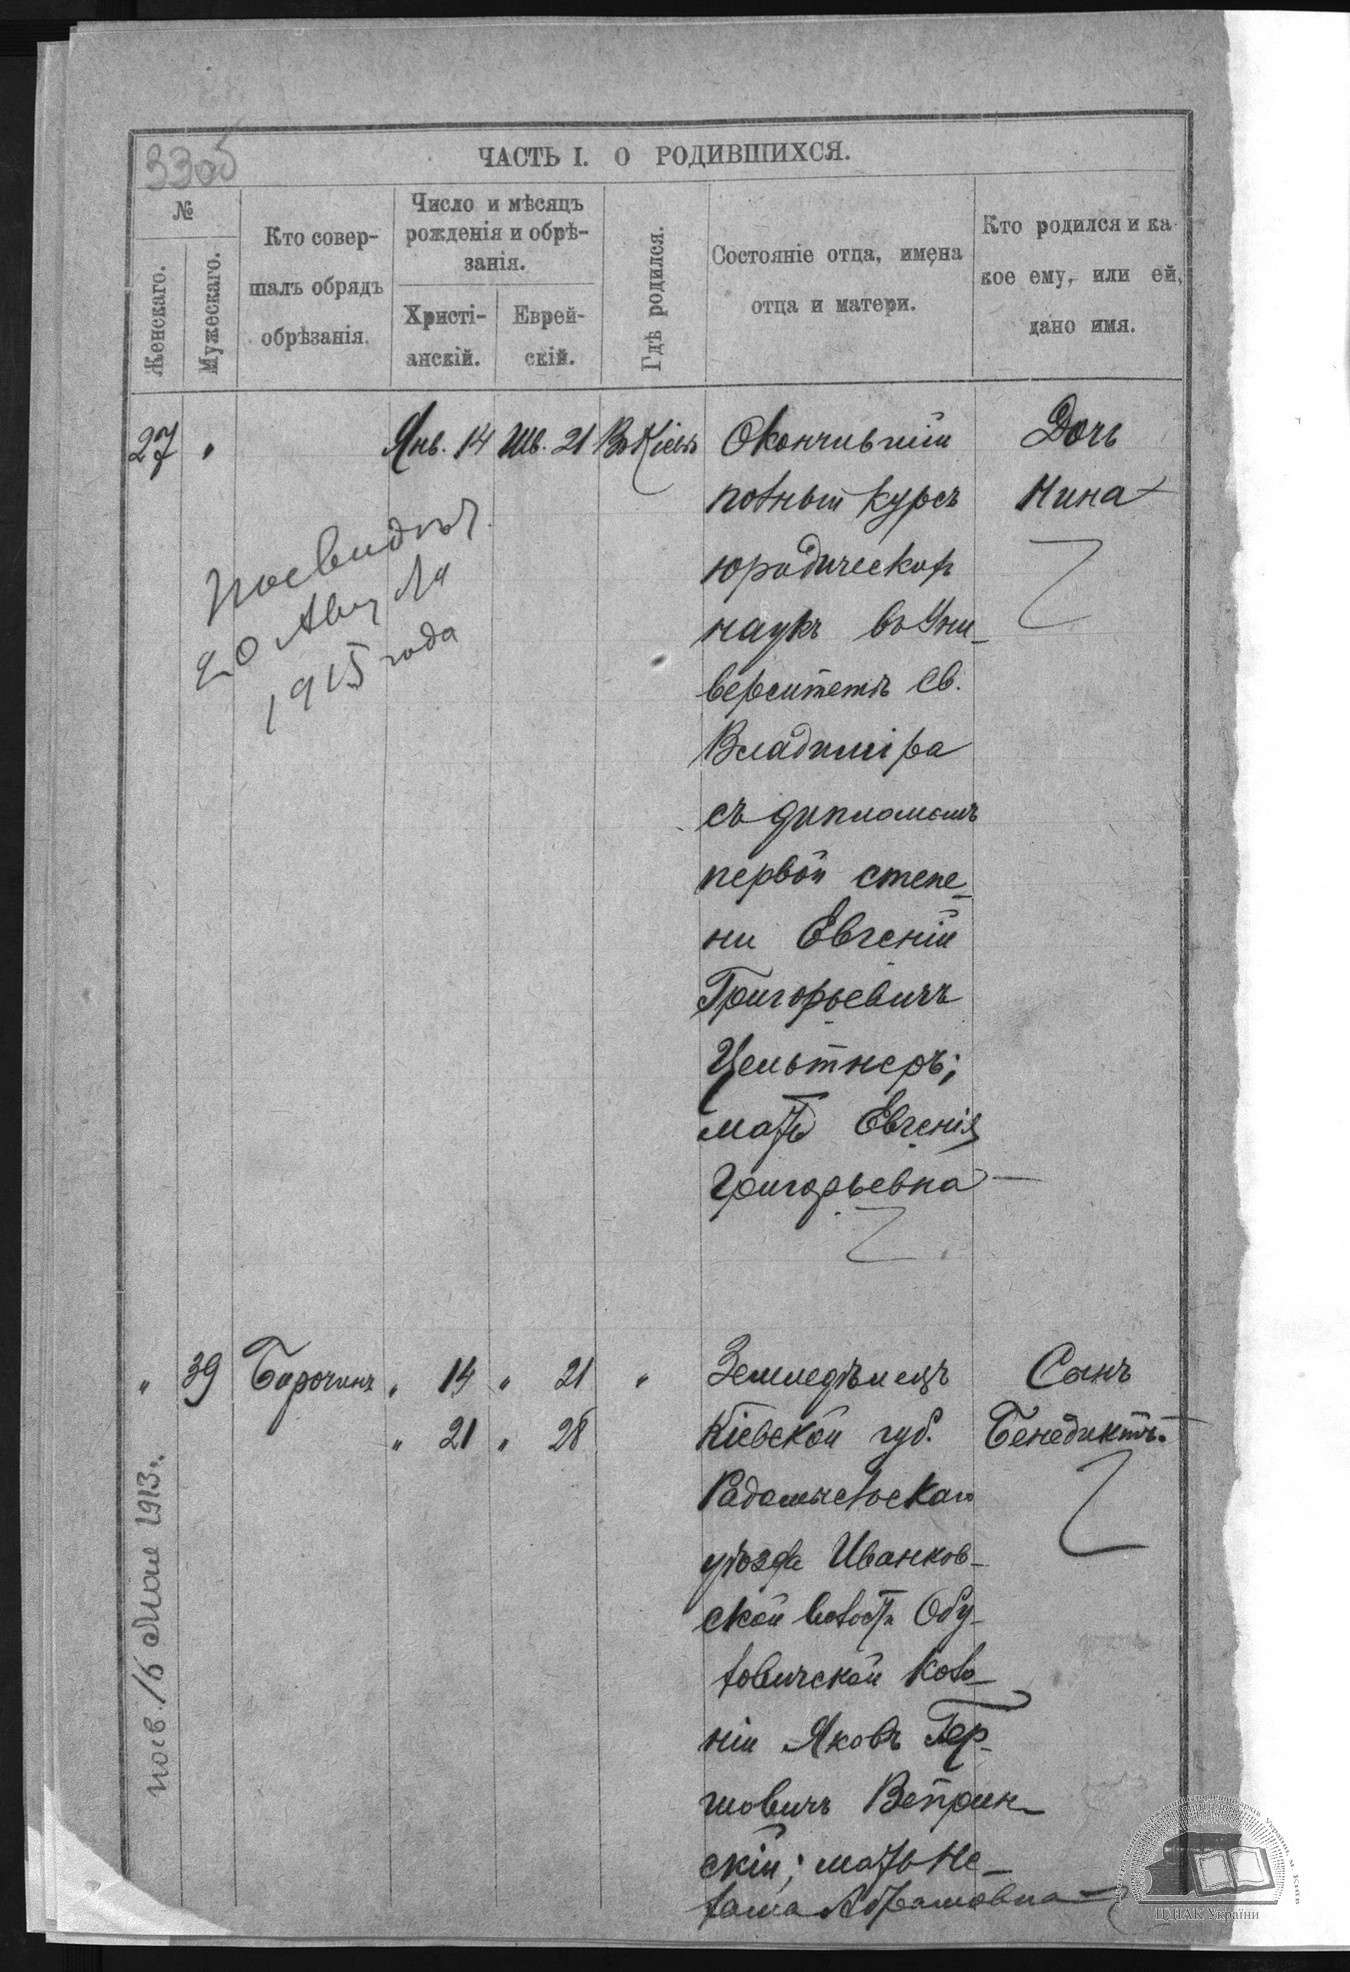 330б
ЧАСТЬ I. О РОДИВШИХСЯ.
№
Женскаго.
Мужескаго.
Кто совер-
шалъ обрядъ
обрѣзанія.
Число и мѣсяцъ
рожденія и обрѣ-
занія.
Христі-
анскій.
Еврей-
скій.
Гдѣ родился.
Состояніе отца, имена
отца и матери.
Кто родился и ка-
кое ему, или ей,
дано имя.
27 " Янв. 14 Шв. 21 Въ Кіевѣ
Окончившій
полный курсъ
юридическихъ
наукъ въ Уни-
верситетѣ Св.
Владиміра
съ дипломомъ
первой степе-
ни Евгеній
Григорьевичъ
Цельтнеръ;
мать Евгенія
Григорьевна
Дочь
Нина
20
1915 года
" 39 " 14 " 21 "
" 21 " 28
Земледѣлецъ
Кіевской губ.
Радомысльскаго
уѣзда Иванков-
ской волости Обу-
ховичской коло-
ніи Яковъ Гер-
шовичъ Веприн-
скій; мать Не-
хама Абрамовна
Сынъ
Бенедиктъ.
1913 г.
ЦДІАК України